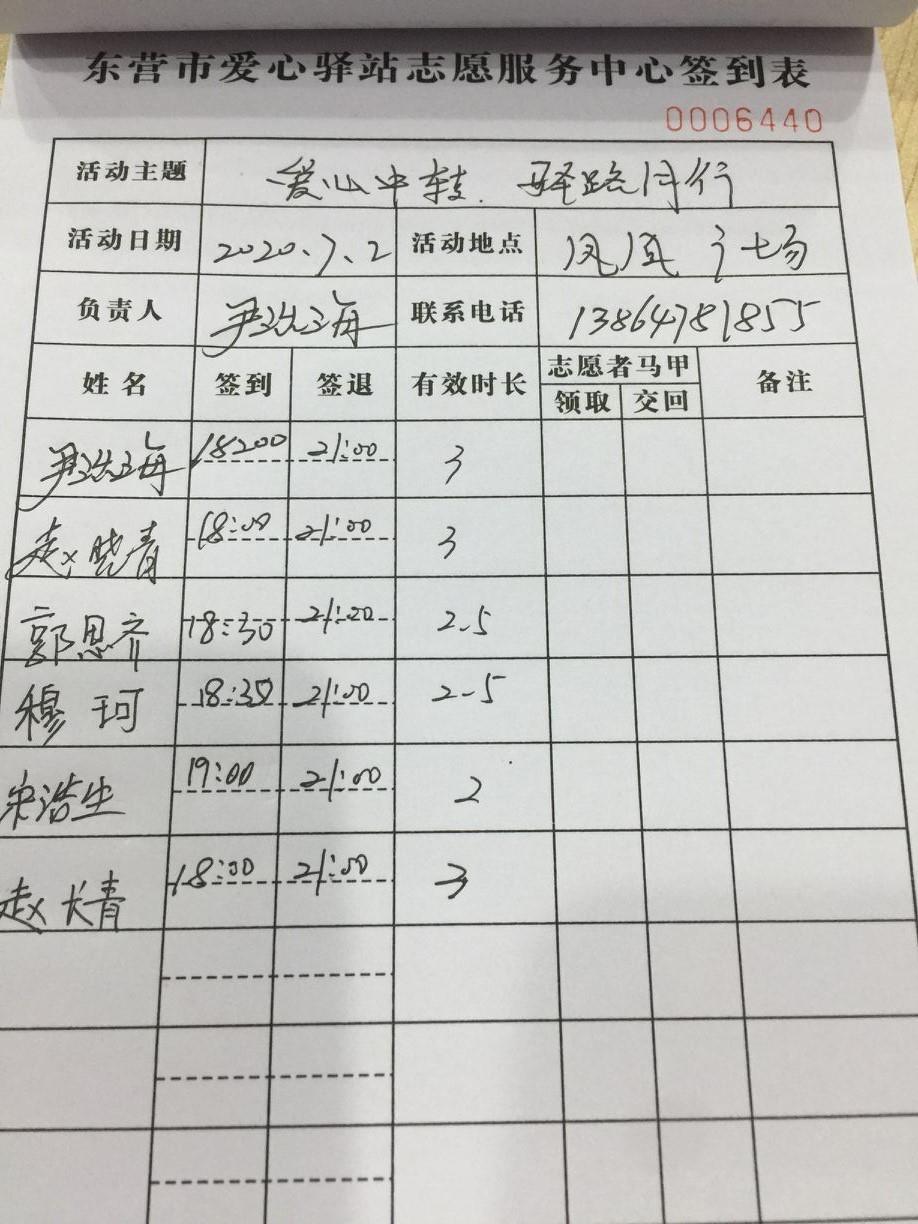 东营市爱心驿站志愿服务中心签到表
0006440
活动主题 爱心中转. 驿路同行
活动日期 2020.7.2 活动地点 凤凰广场
负责人 尹洪海 联系电话 13864781855
姓名 签到 签退 有效时长 志愿者马甲 备注
领取 交回
尹洪海 18:00 21:00 3
赵晓青 18:00 21:00 3
郭思齐 18:30 21:00 2.5
穆珂 18:30 21:00 2.5
宋浩生 19:00 21:00 2
赵长青 18:00 21:00 3